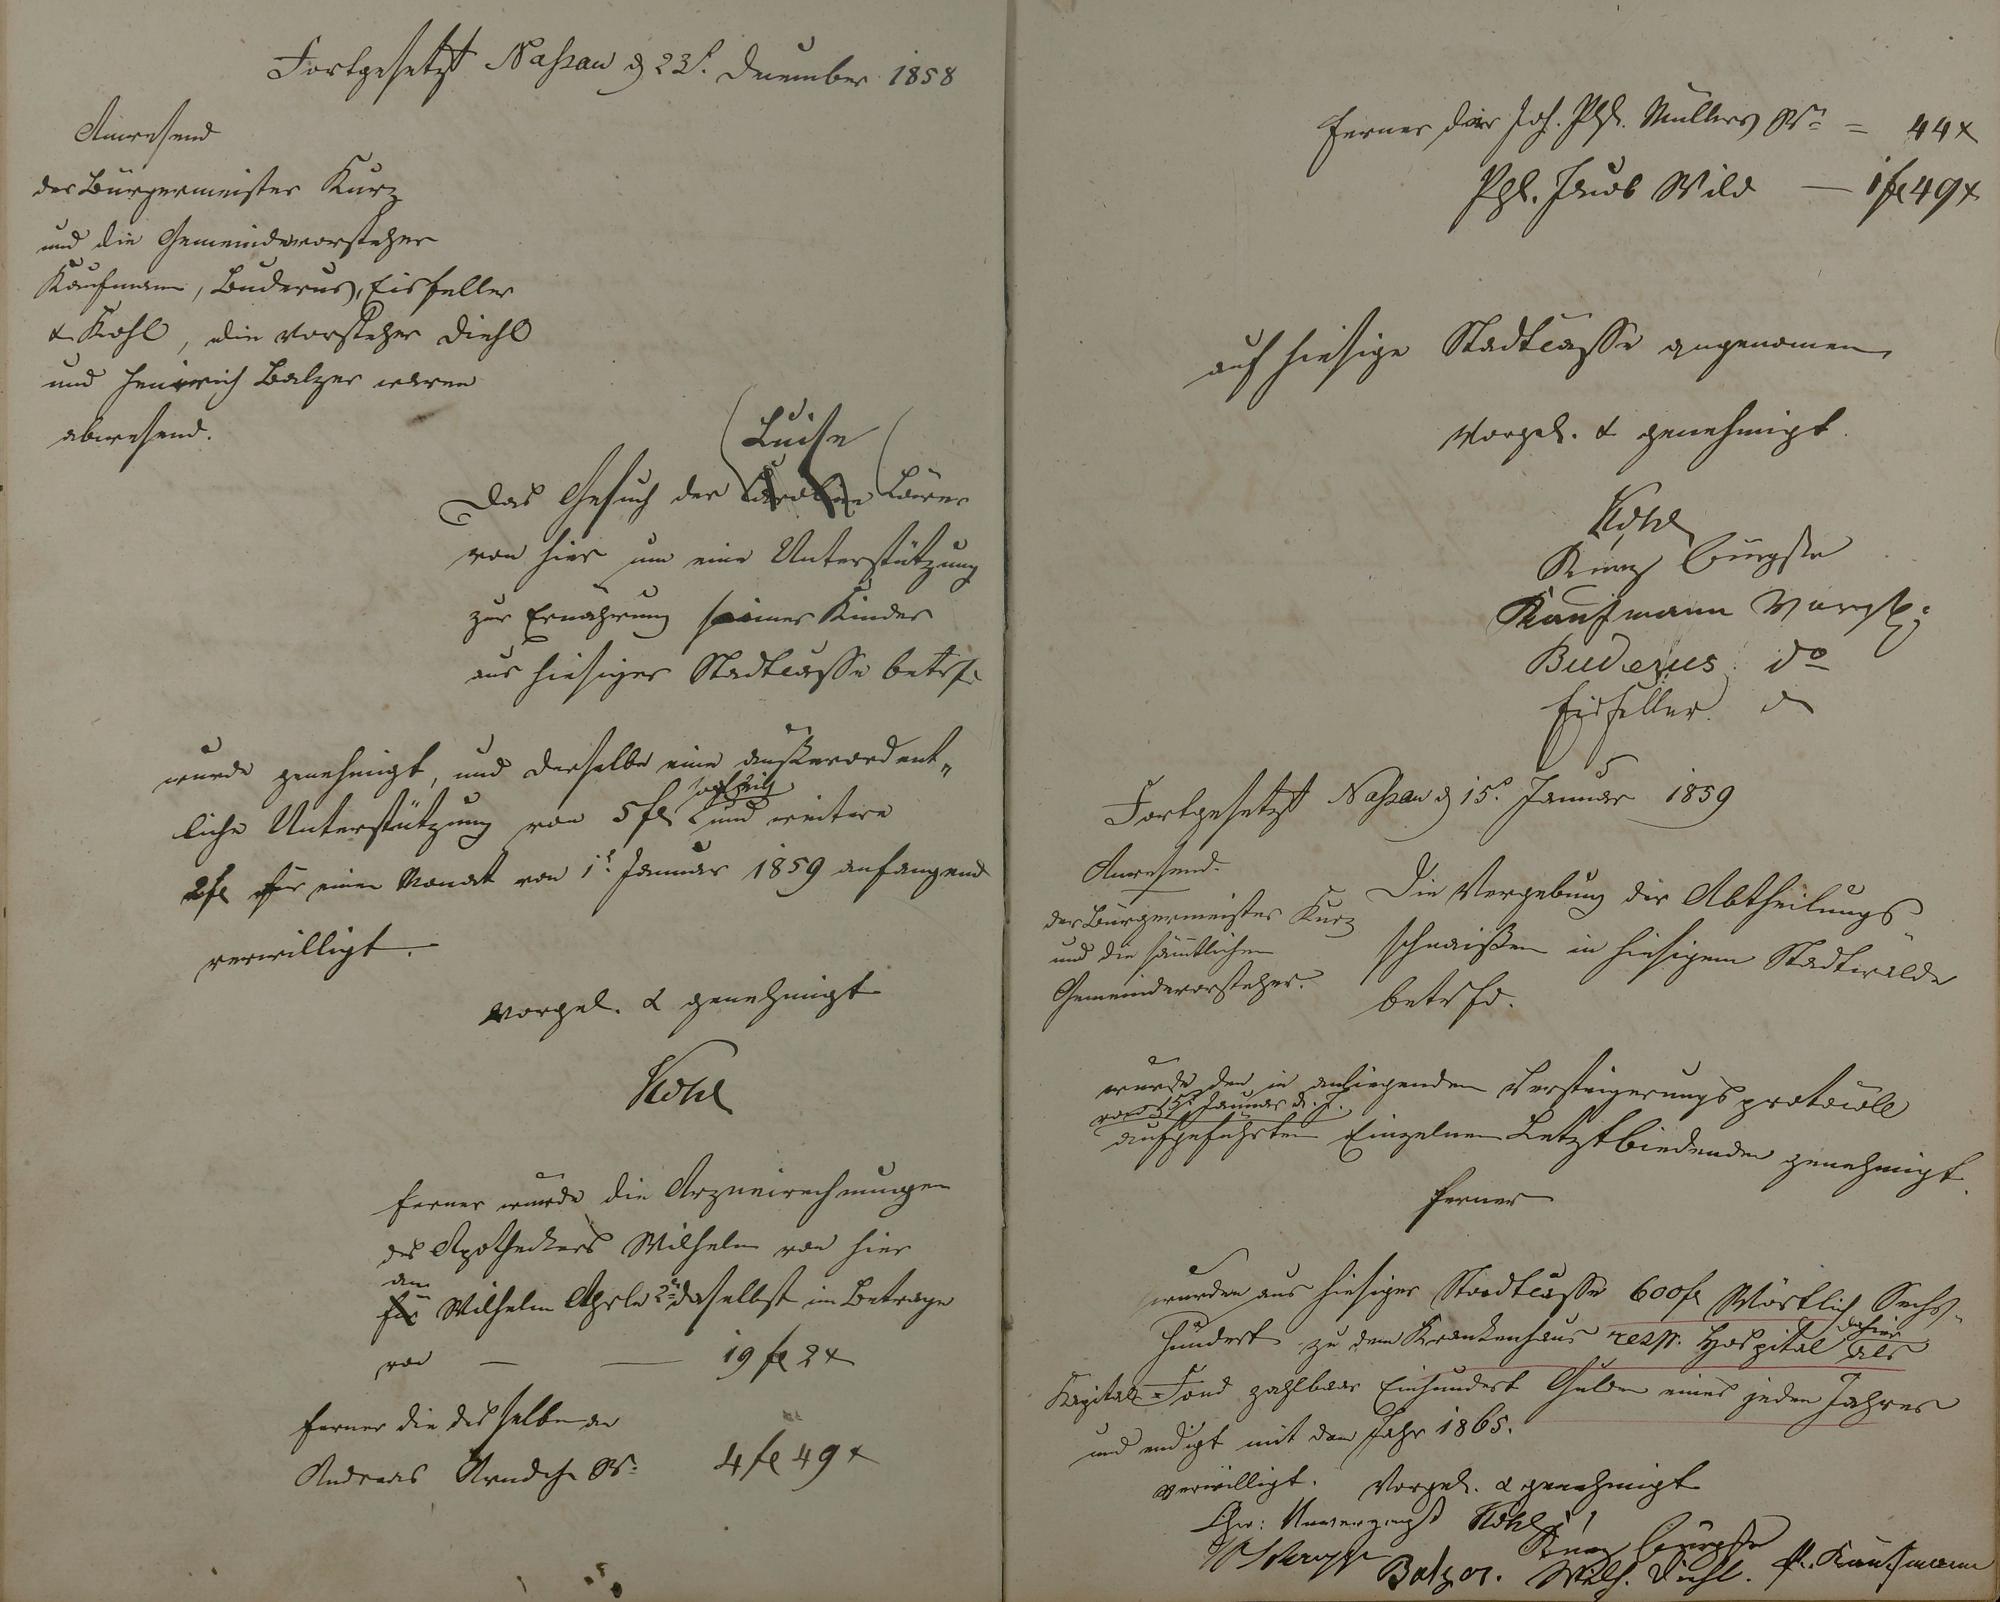 Fortgesetzt Nassau d 23t. December 1858
Anwesend
der Bürgermeister Kurz
und die Gemeindevorsteher
Kaufmann, Buderus, Eisfeller
& Kohl, die Vorsteher Diehl
und Heinrich Balzer waren
abwesend.
Luise
Das Gesuch der Caroline
von hier um eine Unterstützung
zur Ernährung seines Kindes
aus hiesiger Stadtcasse betrf.
wurde genehmigt, und derselbe eine außerordent„
sofhrig
liche Unterstützung von 5 fl und weitere
2 fl für einen Monat von 1t. Januar 1859 anfangend
verwilligt.
Vorgel. & genehmigt
Kohl
ferner wurde die Arzneirechnungen
des Apotheckers Wilhelm von hier
an
für Wilhelm 2r daselbst im Betrage
von — — 19 fl 2 x
ferner die desselben an
Andreas Wr: 4 fl 49 x
ferner der Joh. Phil. Müllers Wr = 44 x
Phl. Jacob Wild — 1 fl 49 x
auf hiesige Stadtcasse angenomen
Vorgel. & genehmigt.
Kohl
Kurz Bürgstr
Kaufmann Vorst:
Buderus do
Eisfeller do
Fortgesetzt Nassau d 15t. Januar 1859
Anwesend.
der Bürgermeister Kurz
und die sämtlichen
Gemeindevorsteher.
Die Vergebung der Abtheilungs„
schnaißen in hiesigem Stadtwalde
betrfd.
wurde den in anliegendem Versteigerungsprotocoll
vom 15t Januar d. J.
aufgeführten Einzelnen Letztbiedenden genehmigt.
ferner
wurden aus hiesiger Stadtcasse 600 fl Wörtlich Sechs„
hundert zu dem Krankenhaus resp. Hospital dahier als
Kapital-Fond zahlbar Einhundert Gulden eines jeden Jahres
und endigt mit dem Jahr 1865.
verwilligt. Vorgel. & genehmigt
Chr: Unverzagt Kohl
Kurz Bürgstr
Balzer. Wilh. Diehl. Kaufmann